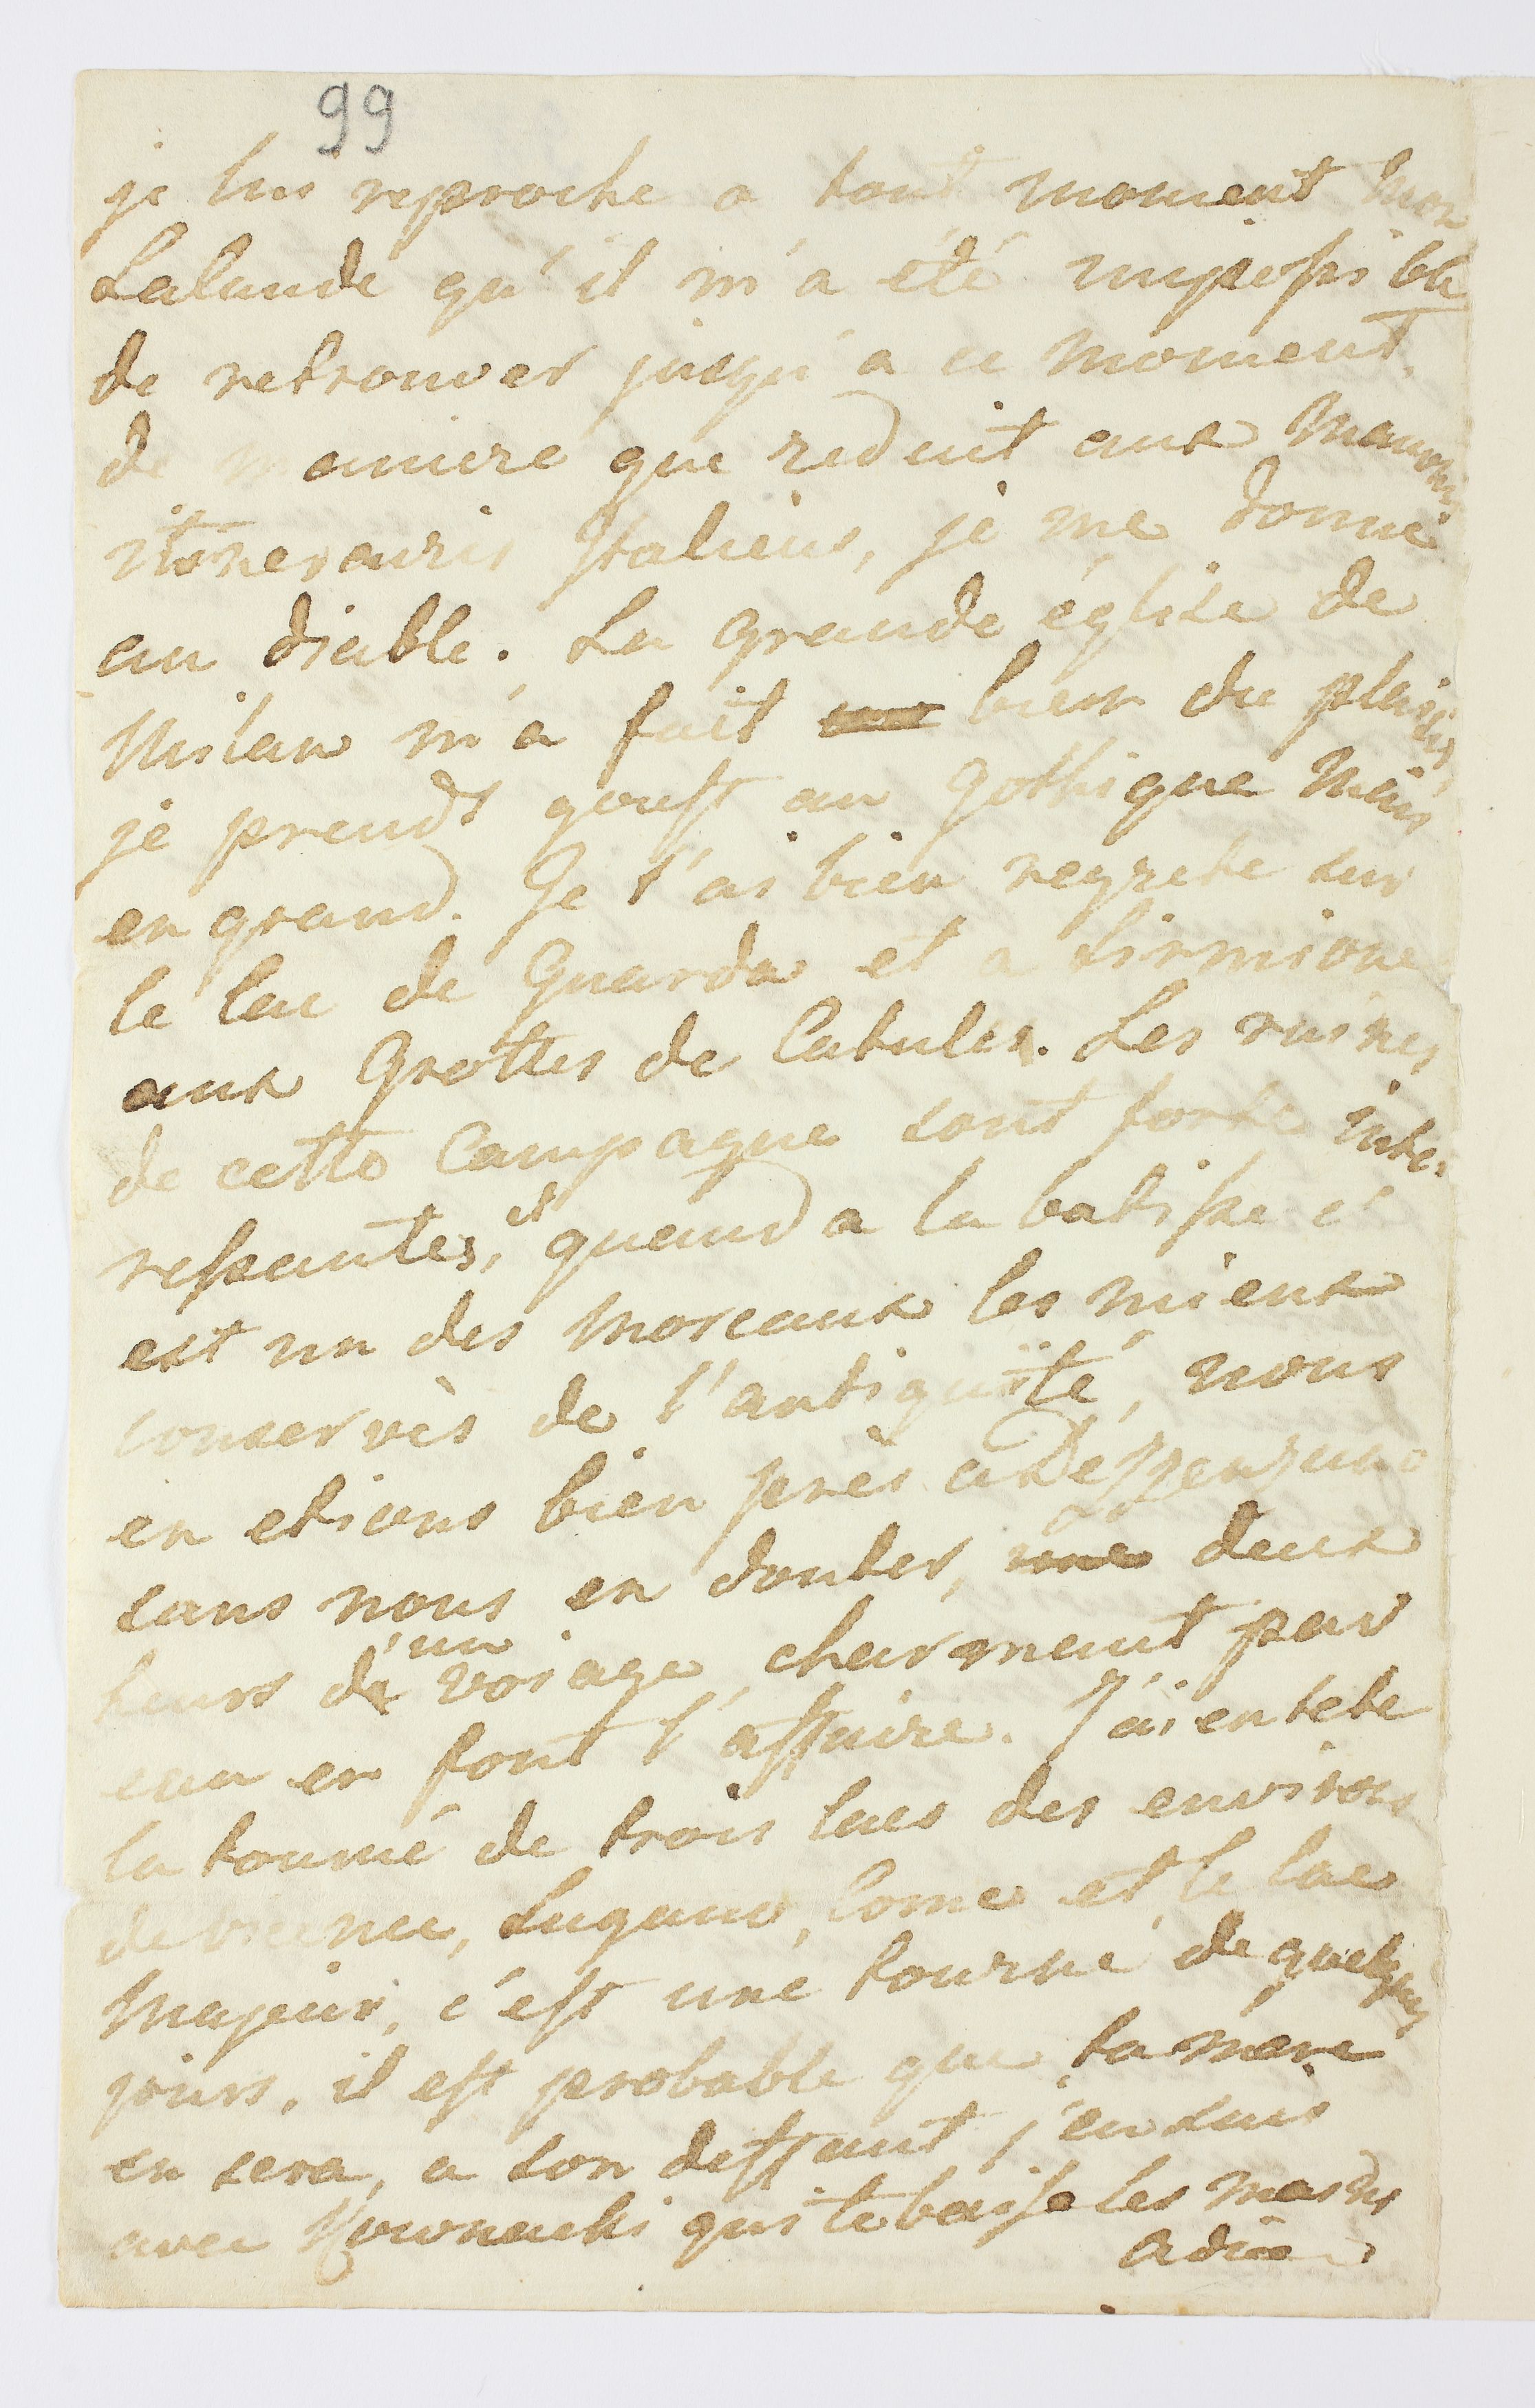 99
je lui reproche a tout moment mon
Lalande qu'il m'a été impossible
de retrouver jusqu'a ce moment,
de maniere que reduit aux mauvais
itineraires Italiens, je me donne
au diable. La grande église de
Milan m'a fait bien du plaisir,
je prends goust au gothique mais
en grand. Je t'ai bien regreté sur
le lac de Guarda et a Sirmione
aux Grottes de Catule. Les ruines
de cette Campagne sont forte inte-
ressantes, et quand a la batisse c'
est un des morceaux les mieux
conservès de l'antiquité, nous
en etions bien près a Dezenzano
sans nous en douter, deux
heures d'un voiage charmant par
eau en font l'affaire. J'ai en tete
la tourné de trois lacs des environs
Lugano, Come et le lac
Majeur, c'est une tourné de quelques
jours, il est probable que ta mère
en sera, a son deffaut j'en suis
avec qui te baise les mains
adieu